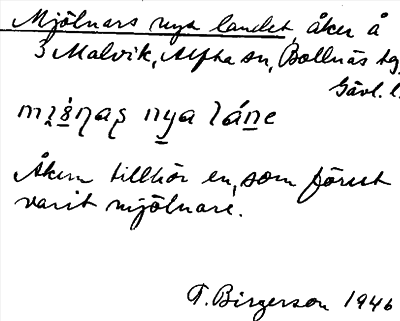 Mjölnars nya landet, åker å
3 Malvik, Alfta sn, Bollnäs tg,
Gävl. l.
nya
Åkern tillhör en, som förut
varit mjölnare.
T. Birgerson 1946